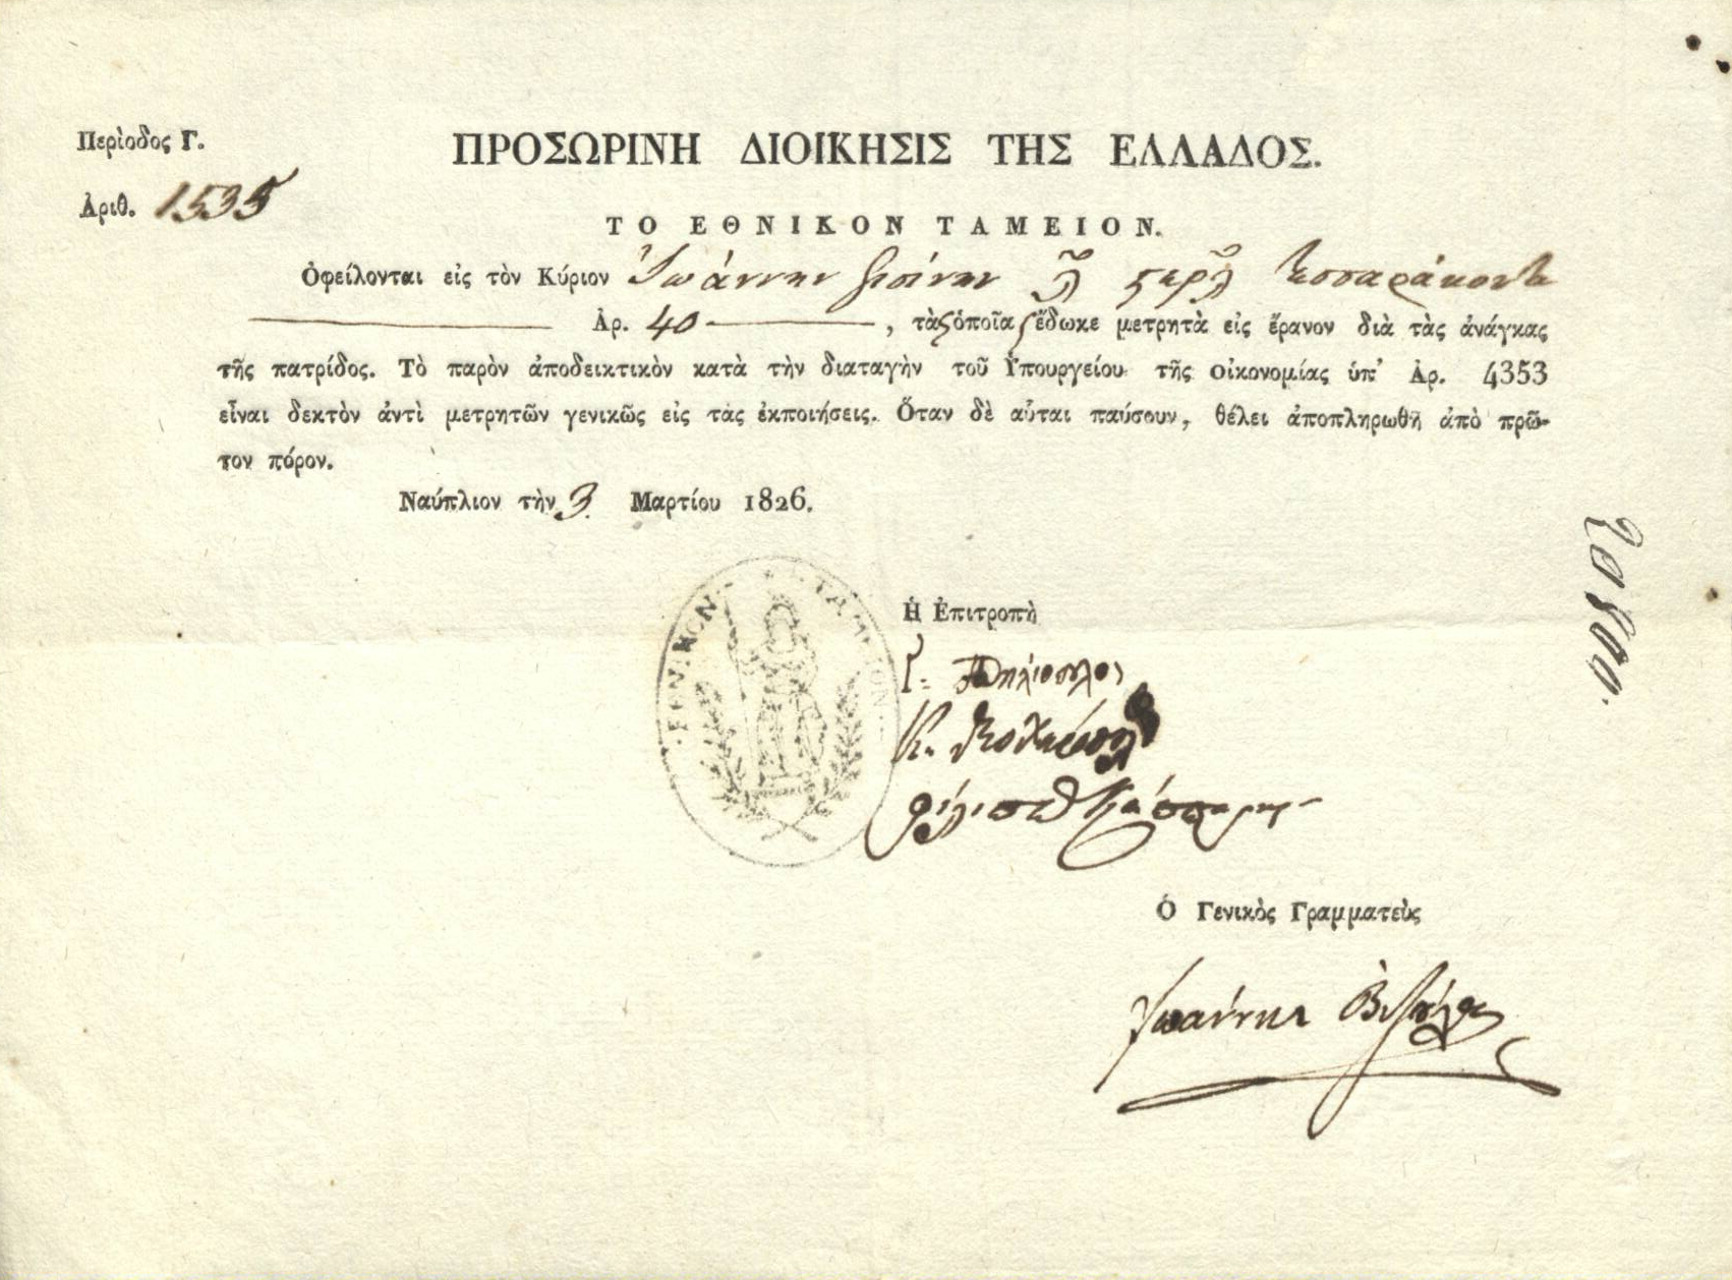 Περίοδος Γ.
Ἀριθ. 1535
ΠΡΟΣΩΡΙΝΗ ΔΙΟΙΚΗΣΙΣ ΤΗΣ ΕΛΛΑΔΟΣ.
ΤΟ ΕΘΝΙΚΟΝ ΤΑΜΕΙΟΝ.
Ὀφείλονται εἰς τὸν Κύριον Ἰωάννην τεσσαράκοντα
Ἀρ. 40 , τὰς ὁποίας ἔδωκε μετρητὰ εἰς ἔρανον διὰ τὰς ἀνάγκας
τῆς πατρίδος. Τὸ παρὸν ἀποδεικτικὸν κατὰ τὴν διαταγὴν τοῦ Ὑπουργείου τῆς οἰκονομίας ὑπ' Ἀρ. 4353
εἶναι δεκτὸν ἀντὶ μετρητῶν γενικῶς εἰς τὰς ἐκποιήσεις. Ὅταν δὲ αὗται παύσουν, θέλει ἀποπληρωθῆ ἀπὸ πρῶ-
τον πόρον.
Ναύπλιον τὴν 3 Μαρτίου 1826.
ΕΘΝΙΚΟΝ ΤΑΜΕΙΟΝ
Ἡ Ἐπιτροπὴ
Κ.
Ὁ Γενικὸς Γραμματεὺς
Ἰωάννης